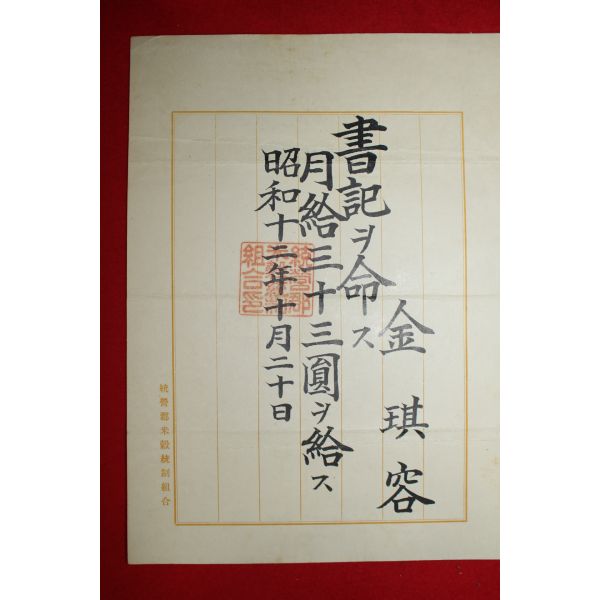 金琪容
書記ヲ命ス
月給三十三圓ヲ給ス
昭和十二年十月二十日
統營郡米穀統制組合